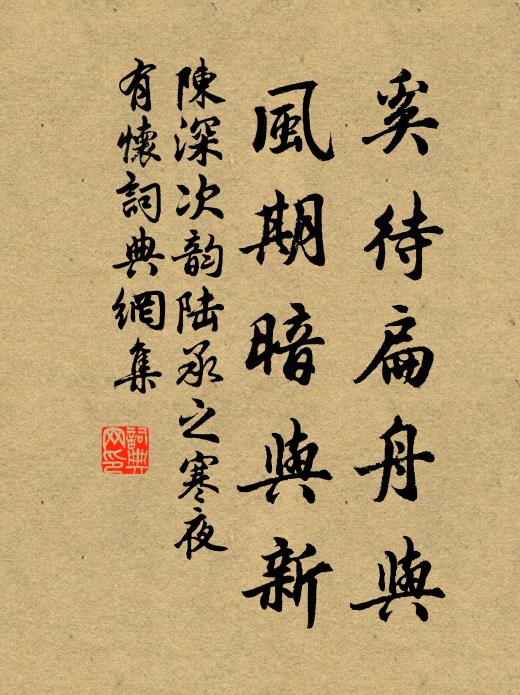 奚待扁舟與
風期暗與新
陳深次韵陆承之寒夜
有懷詞典網集
詞典
网印